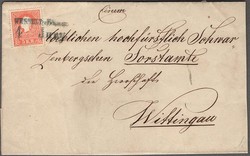 Einem
löblichen hochfürstlich Schwar
zenbergschen Forstamte
der Herrschaft
Wittingau